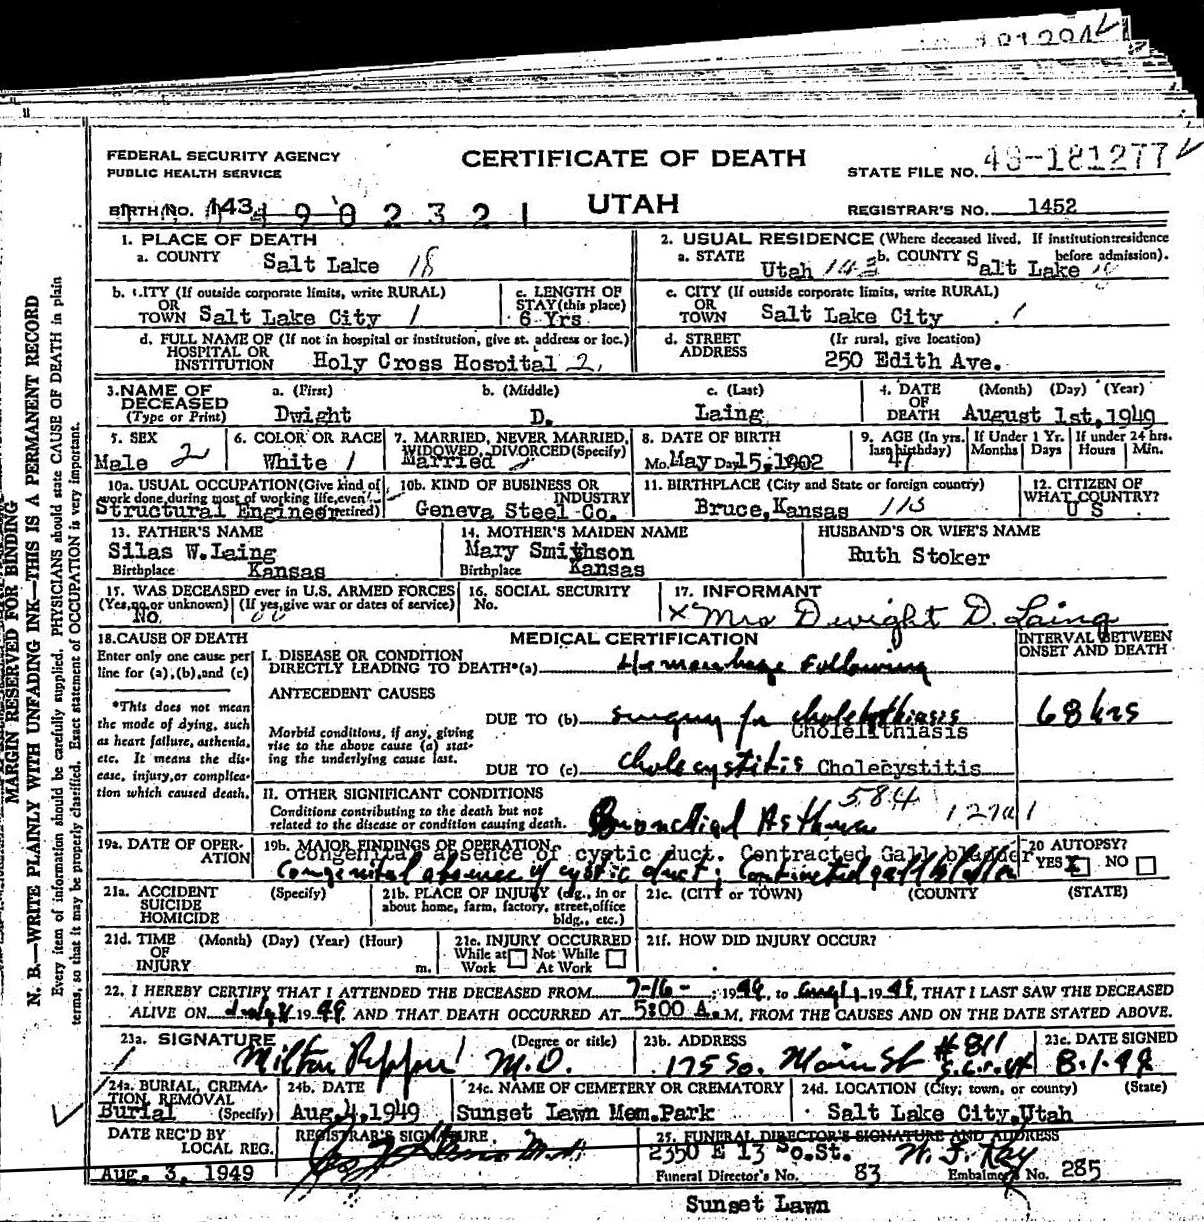 181294
FEDERAL SECURITY AGENCY
PUBLIC HEALTH SERVICE
CERTIFICATE OF DEATH
UTAH
STATE FILE NO. 49-181277
BIRTH NO. 143 4902321
REGISTRAR'S NO. 1452
MARGIN RESERVED FOR BINDING
N. B.—WRITE PLAINLY WITH UNFADING INK—THIS IS A PERMANENT RECORD
Every item of information should be carefully supplied. PHYSICIANS should state CAUSE OF DEATH in plain
terms, so that it may be properly classified. Exact statement of OCCUPATION is very important.
1. PLACE OF DEATH
a. COUNTY Salt Lake 18
2. USUAL RESIDENCE (Where deceased lived. If institution:residence before admission).
a. STATE Utah 143 b. COUNTY Salt Lake
b. CITY (If outside corporate limits, write RURAL)
OR
TOWN Salt Lake City 1
c. LENGTH OF STAY(this place)
6 Yrs
c. CITY (If outside corporate limits, write RURAL)
OR
TOWN Salt Lake City 1
d. FULL NAME OF (If not in hospital or institution, give st. address or loc.)
HOSPITAL OR
INSTITUTION Holy Cross Hospital 2
d. STREET ADDRESS (If rural, give location)
250 Edith Ave.
3.NAME OF DECEASED (Type or Print)
a. (First) b. (Middle) c. (Last)
Dwight D. Laing
4. DATE OF DEATH (Month) (Day) (Year)
August 1st,1949
5. SEX
Male 2
6. COLOR OR RACE
White 1
7. MARRIED, NEVER MARRIED, WIDOWED, DIVORCED(Specify)
Married
8. DATE OF BIRTH
Mo. May Day 15,1902
9. AGE (In yrs. last birthday) If Under 1 Yr. Months Days If under 24 hrs. Hours Min.
47
10a. USUAL OCCUPATION(Give kind of work done,during most of working life,even if retired)
Structural Engineer
10b. KIND OF BUSINESS OR INDUSTRY
Geneva Steel Co.
11. BIRTHPLACE (City and State or foreign country)
Bruce,Kansas 115
12. CITIZEN OF WHAT COUNTRY?
U S
13. FATHER'S NAME
Silas W.Laing
Birthplace Kansas
14. MOTHER'S MAIDEN NAME
Mary Smithson
Birthplace Kansas
HUSBAND'S OR WIFE'S NAME
Ruth Stoker
15. WAS DECEASED ever in U.S. ARMED FORCES
(Yes,no,or unknown) (If yes,give war or dates of service)
No.
16. SOCIAL SECURITY
No.
17. INFORMANT
x Mrs Dwight D. Laing
18.CAUSE OF DEATH
Enter only one cause per line for (a),(b),and (c)
*This does not mean the mode of dying, such as heart failure, asthenia, etc. It means the disease, injury,or complication which caused death.
MEDICAL CERTIFICATION
INTERVAL BETWEEN ONSET AND DEATH
I. DISEASE OR CONDITION
DIRECTLY LEADING TO DEATH*(a) Hemorrhage following
ANTECEDENT CAUSES
Morbid conditions, if any, giving rise to the above cause (a) stating the underlying cause last.
DUE TO (b) surgery for cholelithiasis 68 hrs
Cholelithiasis
DUE TO (c) Cholecystitis Cholecystitis
II. OTHER SIGNIFICANT CONDITIONS 584
Conditions contributing to the death but not related to the disease or condition causing death.
Bronchial Asthma
19a. DATE OF OPERATION
19b. MAJOR FINDINGS OF OPERATION
congenital absence of cystic duct. Contracted Gall bladder
Congenital absence of cystic duct; Contracted gall bladder
20 AUTOPSY?
YES X NO
21a. ACCIDENT SUICIDE HOMICIDE (Specify)
21b. PLACE OF INJURY (eg., in or about home, farm, factory, street,office bldg., etc.)
21c. (CITY or TOWN) (COUNTY) (STATE)
21d. TIME OF INJURY (Month) (Day) (Year) (Hour) m.
21e. INJURY OCCURRED
While at Work Not While At Work
21f. HOW DID INJURY OCCUR?
22. I HEREBY CERTIFY THAT I ATTENDED THE DECEASED FROM 7-16- , 1949, to Aug 1, 1949, THAT I LAST SAW THE DECEASED
ALIVE ON 1949. AND THAT DEATH OCCURRED AT 5:00 A.M. FROM THE CAUSES AND ON THE DATE STATED ABOVE.
23a. SIGNATURE (Degree or title)
Milton Pepper M.D.
23b. ADDRESS
175 So. Main St #811 S.L.C. Ut
23c. DATE SIGNED
8.1.49
24a. BURIAL, CREMATION, REMOVAL (Specify)
Burial
24b. DATE
Aug.4,1949
24c. NAME OF CEMETERY OR CREMATORY
Sunset Lawn Mem.Park
24d. LOCATION (City, town, or county) (State)
Salt Lake City,Utah
DATE REC'D BY LOCAL REG.
Aug. 3, 1949
REGISTRAR'S SIGNATURE
25. FUNERAL DIRECTOR'S SIGNATURE AND ADDRESS
2350 E 13 So.St.
Funeral Director's No. 83 Embalmer's No. 285
Sunset Lawn